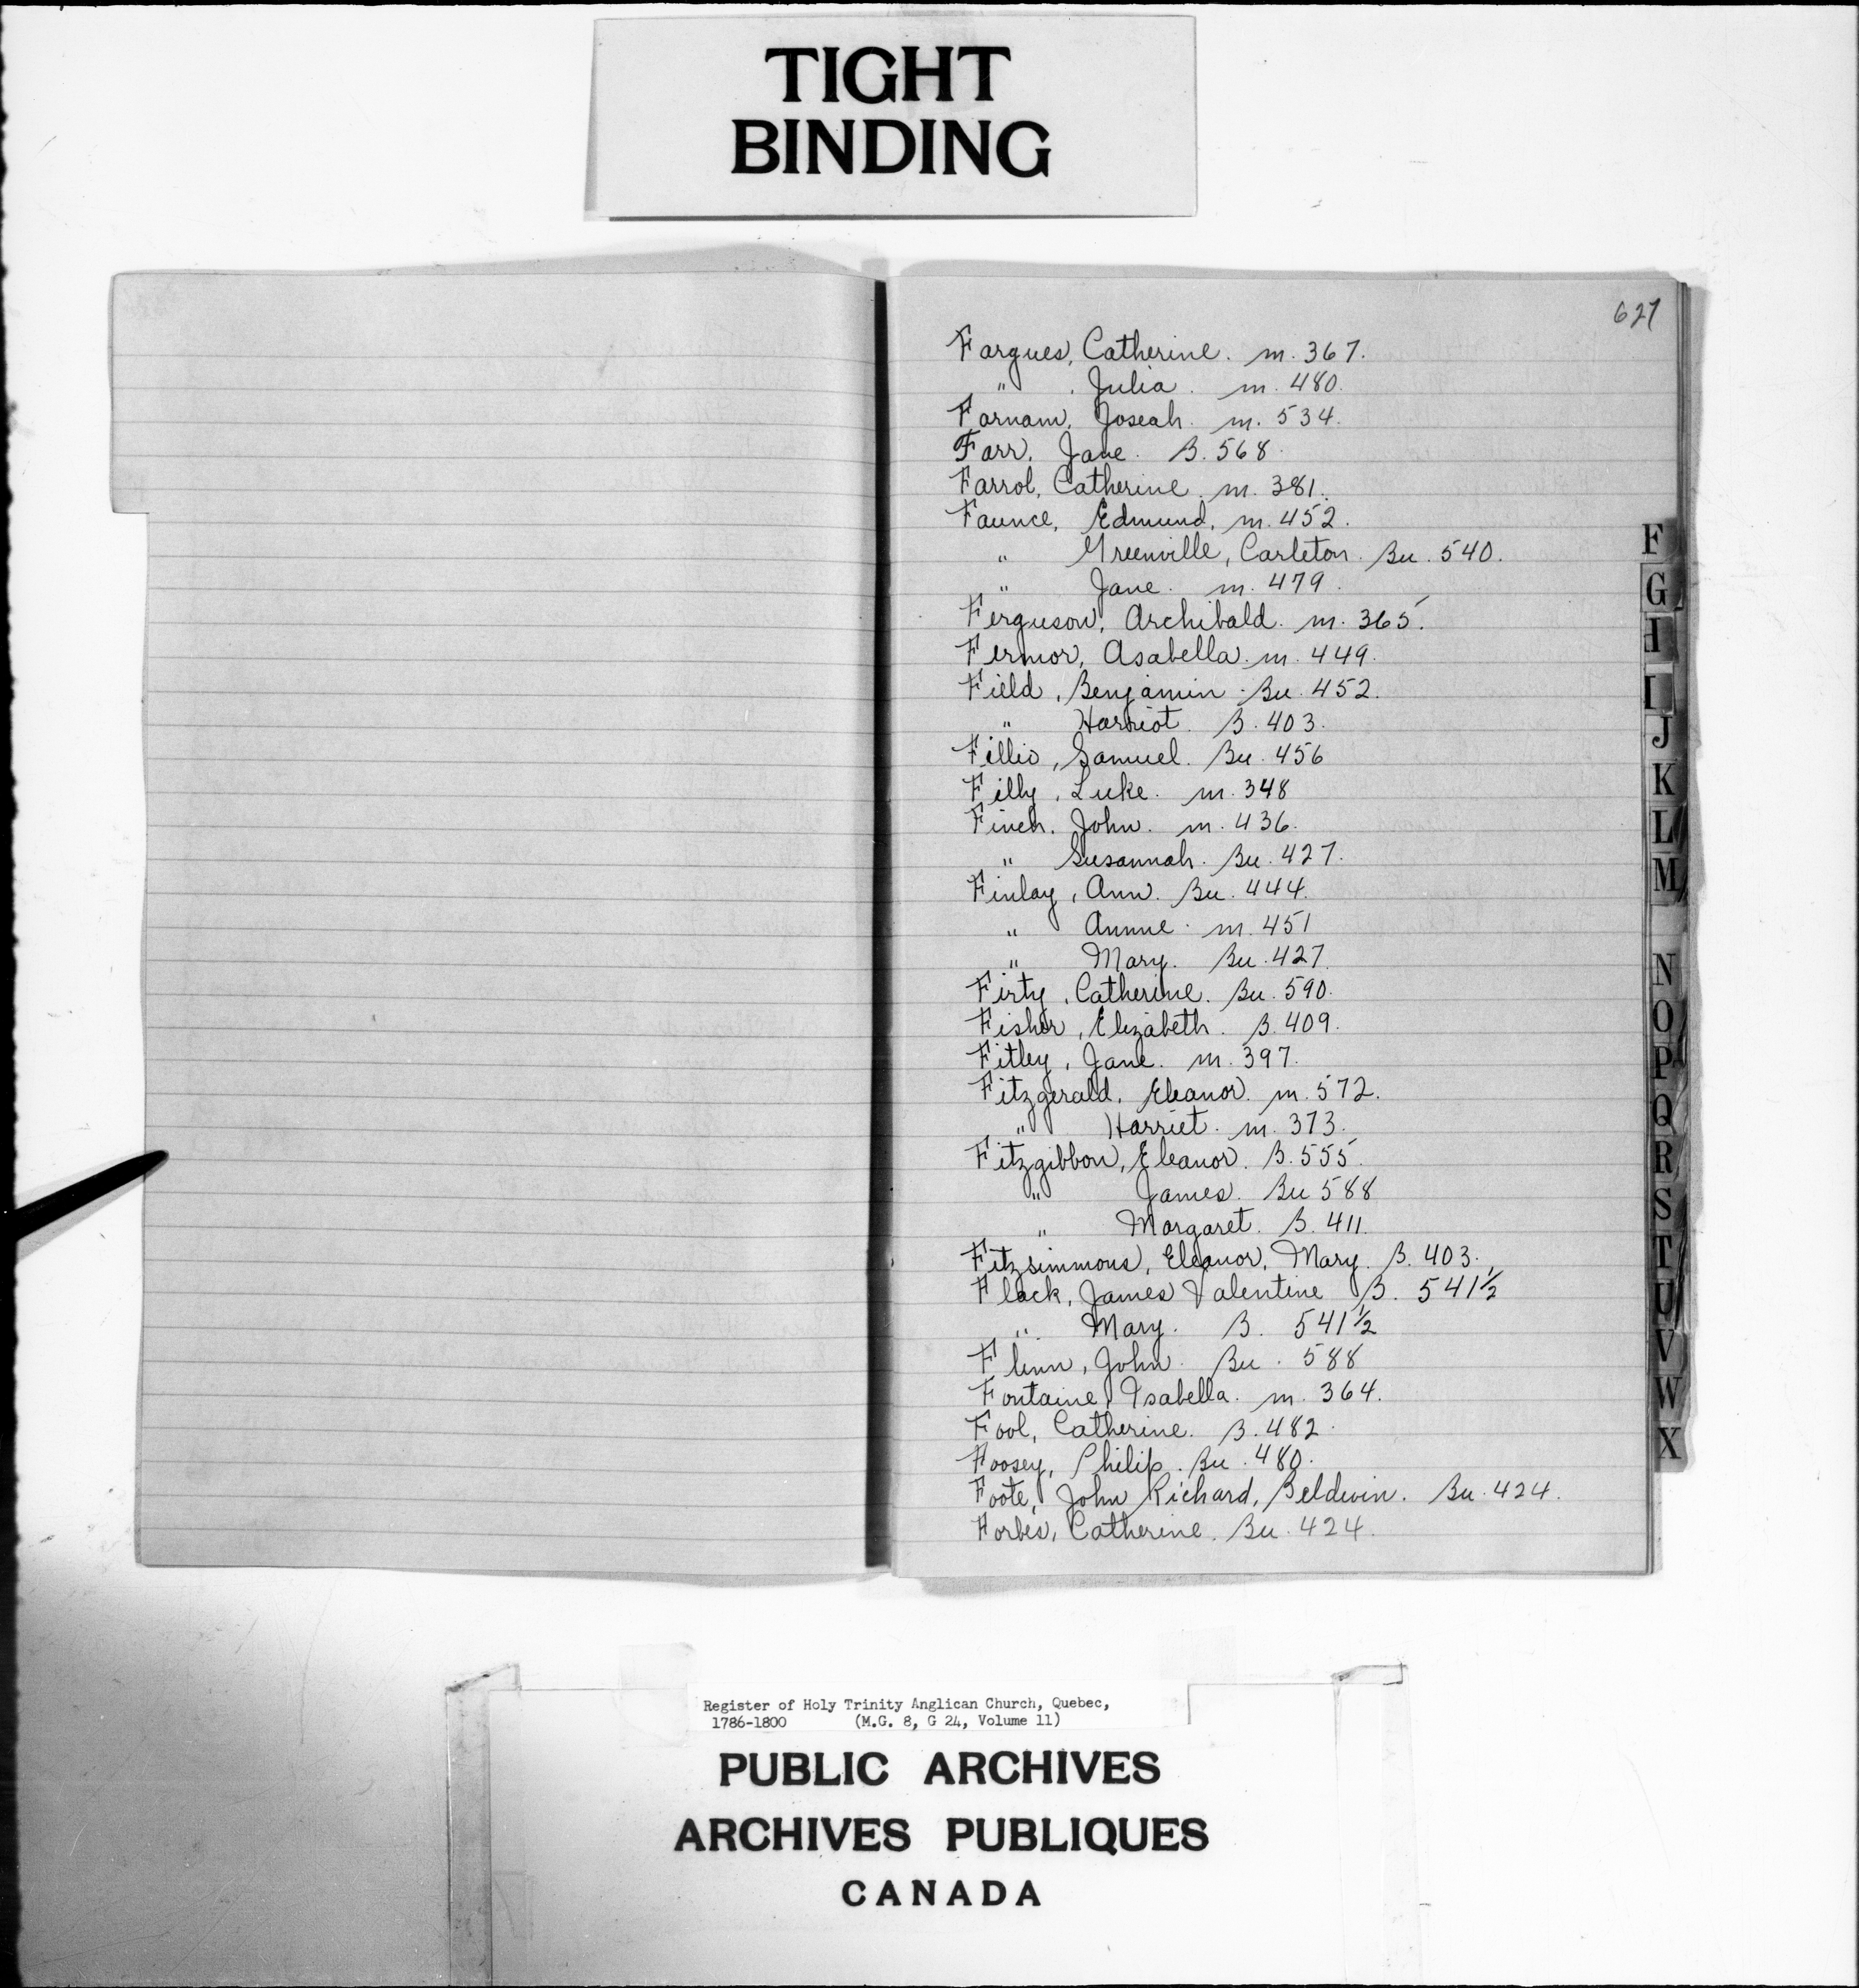 TIGHT
BINDING
627
Fargues, Catherine. m. 367.
" . Julia. m. 480.
Farnam, Joseah. m. 534.
Farr. Jane. B. 568.
Farrol, Catherine. m. 381.
Faunce, Edmund, m. 452.
" Greenville, Carleton. Bu. 540.
" Jane. m. 479.
Ferguson, Archibald. m. 365.
Fermor, Asabella. m. 449.
Field, Benjamin. Bu. 452.
" Harriot. B. 403.
Fillio, Samuel. Bu. 456
Filly, Luke. m. 348
Finch. John. m. 436.
" Susannah. Bu. 427.
Finlay, Ann. Bu. 444.
" Annne. m. 451
" Mary. Bu. 427.
Firty, Catherine. Bu. 590.
Fisher, Elizabeth. B. 409.
Fitley, Jane. m. 397.
Fitzgerald, Eleanor. m. 572.
" Harriet. m. 373.
Fitzgibbon, Eleanor. B. 555.
" James. Bu 588
" Margaret. B. 411.
Fitzsimmons, Eleanor, Mary. B. 403.
Flack, James Valentine B. 541½
" Mary. B. 541½
Flinn, John. Bu. 588
Fontaine, Isabella. m. 364.
Fool, Catherine. B. 482.
Foosey, Philip. Bu. 480.
Foote, John Richard, Beldwin. Bu. 424.
Forbes, Catherine. Bu. 424.
F
G
H
I
J
K
L
M
N
O
P
Q
R
S
T
U
V
W
X
Register of Holy Trinity Anglican Church, Quebec,
1786-1800 (M.G. 8, G 24, Volume 11)
PUBLIC ARCHIVES
ARCHIVES PUBLIQUES
CANADA